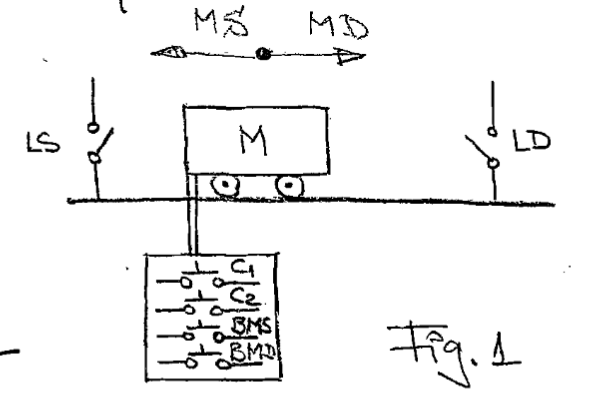 MS MD
LS M LD
C1
C2
BMS
BMD
Fig. 1